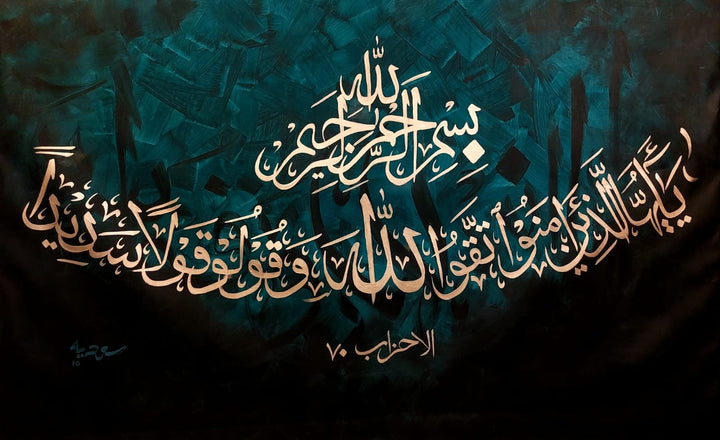 بِسْمِ اللّٰهِ الرَّحْمٰنِ الرَّحِيمِ
يَٰٓأَيُّهَا الَّذِينَ ءَامَنُوا اتَّقُوا اللّٰهَ وَقُولُوا قَوْلًا سَدِيدًا
الاحزاب ٧٠